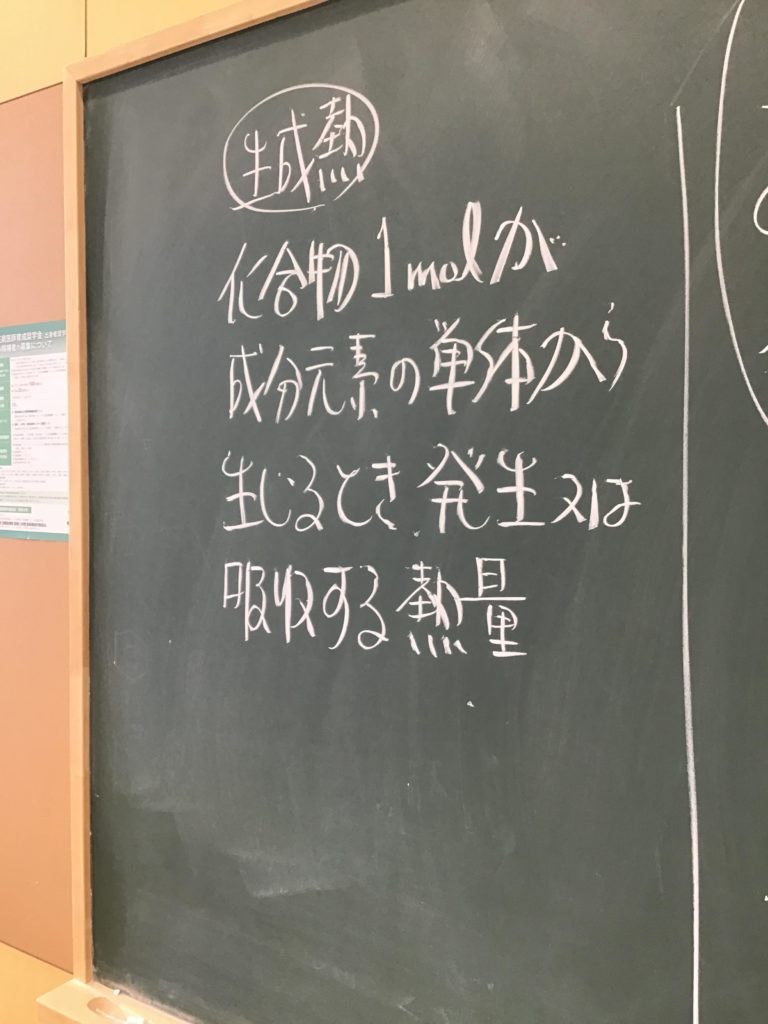 生成熱
化合物1molが
成分元素の単体から
生じるとき発生又は
吸収する熱量